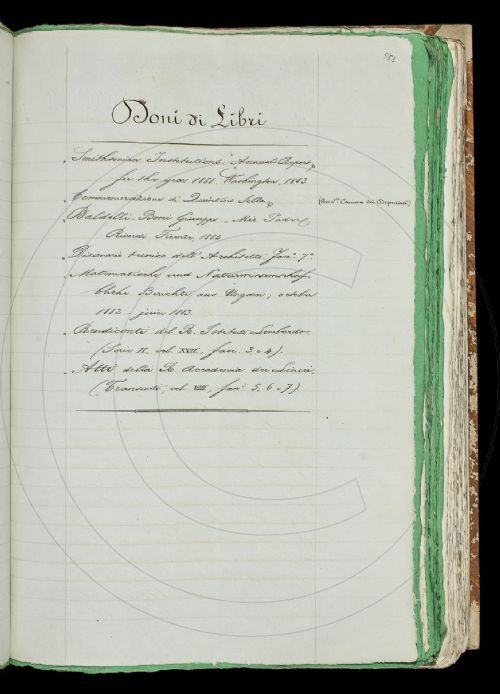 553
Doni di Libri
Smithsonian Institutions Annual Report
for the year 1881. Washington, 1883
Commemorazione di Quintino Sella
Camera dei Deputati)
Baldelli Boni Giuseppe - Mio Padre,
Ricordi. Firenze, 1884
Dizionario tecnico dell'Architetto, Fasc. 7º
Mathematische und Naturwissenschaft-
liche Berichte aus Ungarn; october
1882 - juin 1883.
Rendiconti del R. Istituto Lombardo
(Serie II, vol. XVII, fasc. 3 e 4).
Atti della R. Accademia dei Lincei,
(Transunti, vol. VIII, fasc. 5, 6 e 7)